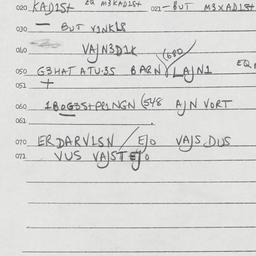 020. KAD1St EQ M3KAD1St 021-BUT M3XAD1St
030. BUT V1NKLS
040 VAJN3D1K
050 G3HAT ATU3S BARN (600) LAJN1 EQ
051
060 1BOG3StPR1NGN (548 AJN VORT
061
070 ERDARV1SN / EJO VAJS DUS
071. VUS VAJST EJO